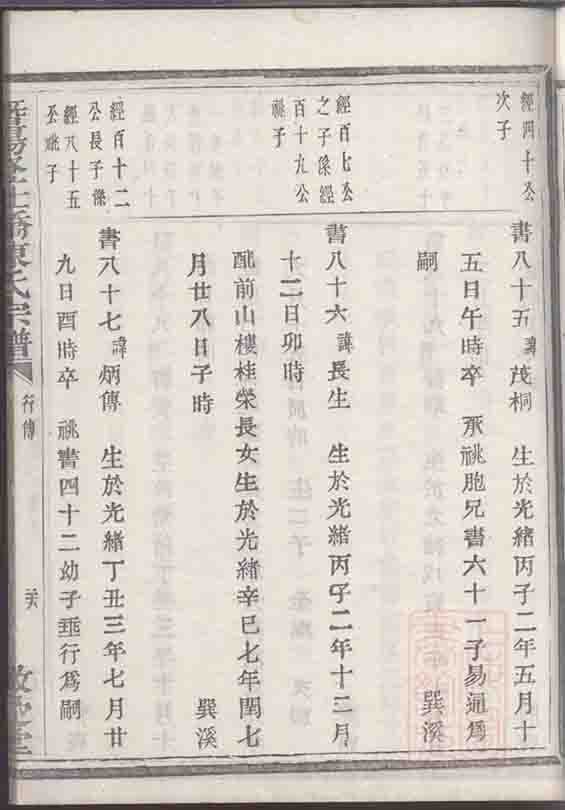 經四十公
次子
書八十五 諱茂桐 生於光緒丙子二年五月十
五日午時卒 承祧胞兄書六十一子易通為
嗣 巽溪
經百七公
之子係經
百十九公
祧子
書八十六 諱長生 生於光緒丙子二年十二月
十二日卯時
配前山樓桂榮長女生於光緒辛巳七年閏七
月廿八日子時 巽溪
經百十二
公長子係
經八十五
公祧子
書八十七 諱炳傳 生於光緒丁丑三年七月廿
九日酉時卒 祧書四十二幼子垂行為嗣
陳氏宗譜
行傳